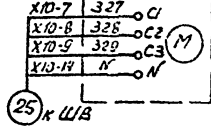 X10-7 327 C1
X10-8 328 C2
X10-9 329 C3
X10-14 N N
M
25 К ШВ